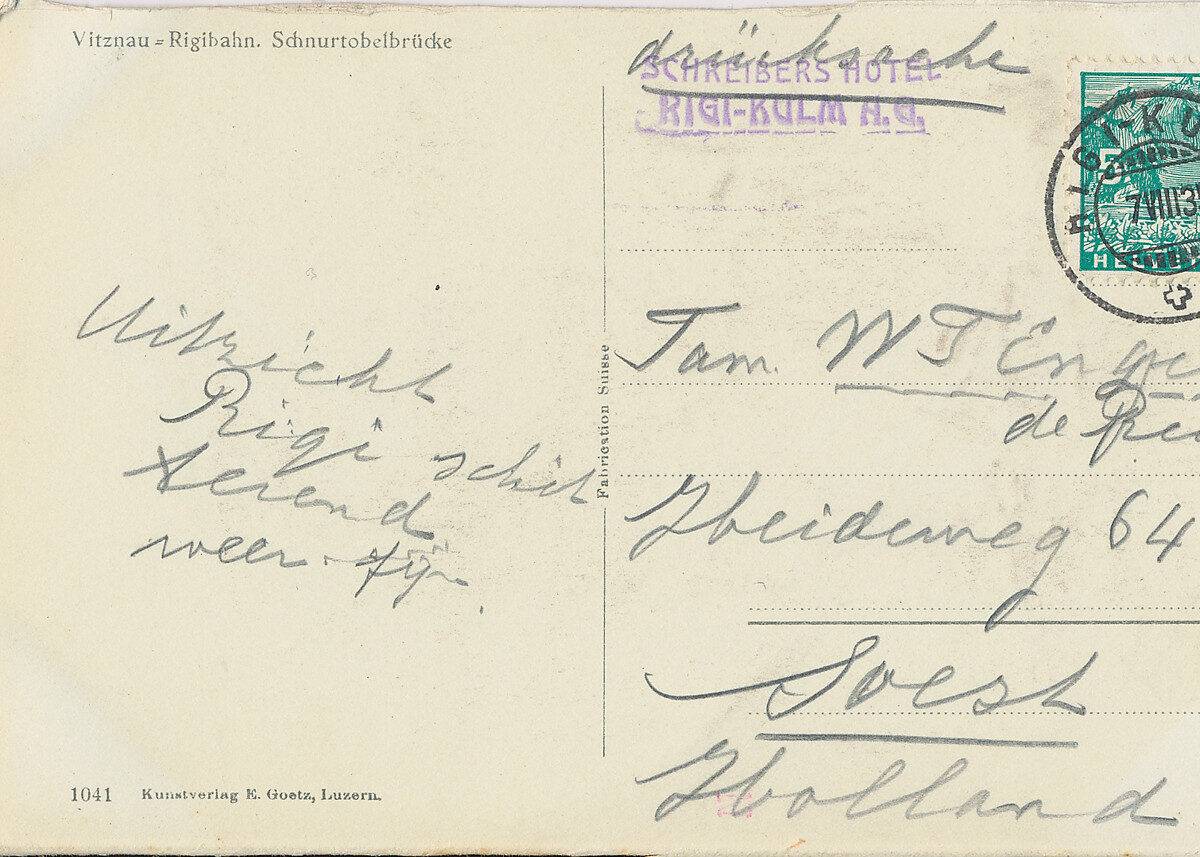 Vitznau=Rigibahn. Schnurtobelbrücke
drücksache
SCHREIBERS HOTEL
RIGI-KULM A.G.
RIGI-KU
7 VIII 3
HEL
Uitzicht
Rigi schit
terend
weer fijn.
Fabrication Suisse
Fam. W J Enge
de
Heideweg 64
Soest
Holland
1041 Kunstverlag E. Goetz, Luzern.